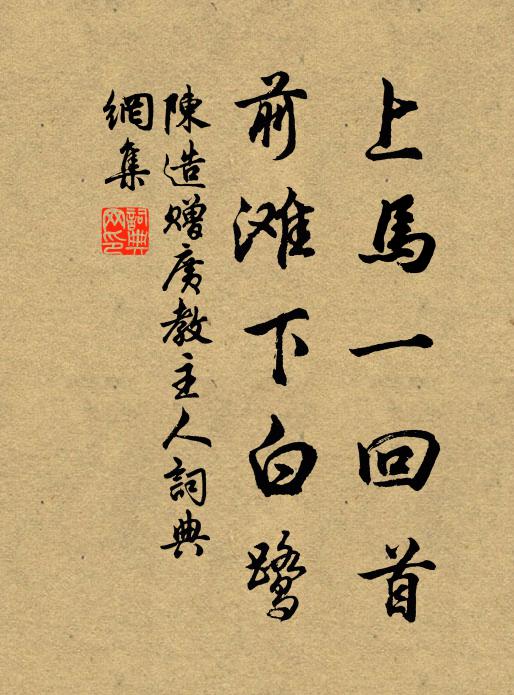 上馬一回首
前滩下白鹭
陳造赠广教主人詞典
網集
詞典网印